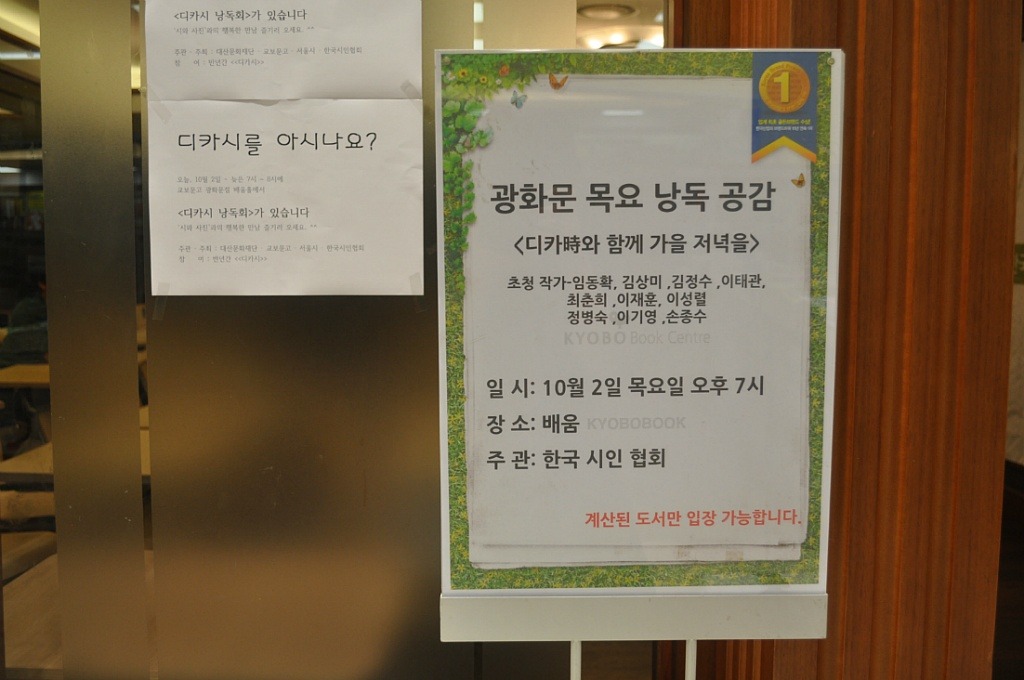 <디카시 낭독회>가 있습니다
'시와 사진'과의 행복한 만남 즐기러 오세요. ^^
주관 · 주최 : 대산문화재단 · 교보문고 · 서울시 · 한국시인협회
참 여 : 반년간 <<디카시>>
디카시를 아시나요?
오늘, 10월 2일 - 늦은 7시 ~ 9시에
교보문고 광화문점 배움홀에서
<디카시 낭독회>가 있습니다
'시와 사진'과의 행복한 만남 즐기러 오세요. ^^
주관 · 주최 : 대산문화재단 · 교보문고 · 서울시 · 한국시인협회
참 여 : 반년간 <<디카시>>
1
광화문 목요 낭독 공감
<디카時와 함께 가을 저녁을>
초청 작가-임동확, 김상미 ,김정수 ,이태관,
최춘희 ,이재훈, 이성렬
정병숙 ,이기영 ,손종수
KYOBO Book Centre
일 시: 10월 2일 목요일 오후 7시
장 소: 배움 KYOBOBOOK
주 관: 한국 시인 협회
계산된 도서만 입장 가능합니다.